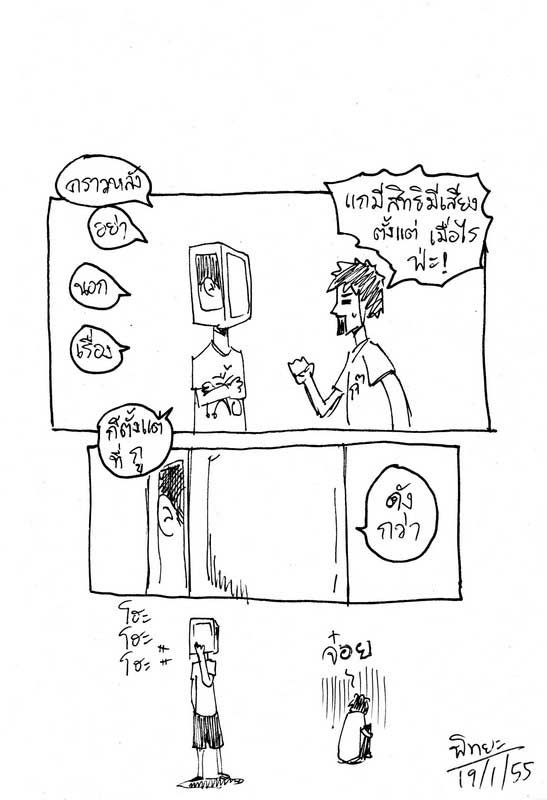 คราวหลัง
อย่า
นอก
เรื่อง
แกมีสิทธิมีเสียง
ตั้งแต่ เมื่อไร
ฟ่ะ!
ก็ตั้งแต่
ที่ กู
ดัง
กว่า
โฮะ
โฮะ
โฮะ
จ๋อย
พิทยะ
19/1/55